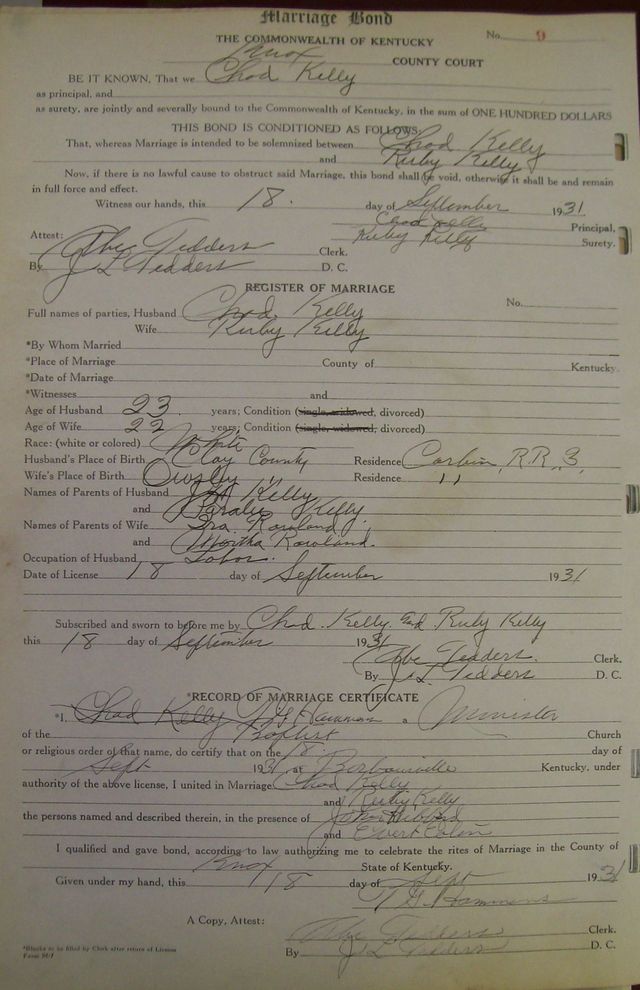 Marriage Bond
THE COMMONWEALTH OF KENTUCKY No. 9
Knox COUNTY COURT
BE IT KNOWN, That we Chad Kelly
as principal, and
as surety, are jointly and severally bound to the Commonwealth of Kentucky, in the sum of ONE HUNDRED DOLLARS
THIS BOND IS CONDITIONED AS FOLLOWS:
That, whereas Marriage is intended to be solemnized between Chad Kelly
and Ruby Kelly
Now, if there is no lawful cause to obstruct said Marriage, this bond shall be void, otherwise it shall be and remain
in full force and effect.
Witness our hands, this 18. day of September 1931
Chad Kelly Principal,
Ruby Kelly Surety.
Attest:
Abe Tedders Clerk.
By J L Tedders D. C.
REGISTER OF MARRIAGE
Full names of parties, Husband Chad. Kelly No.
Wife Ruby Kelly
*By Whom Married
*Place of Marriage County of Kentucky
*Date of Marriage
*Witnesses and
Age of Husband 23. years; Condition (single, widowed, divorced)
Age of Wife 22 years; Condition (single, widowed, divorced)
Race: (white or colored) White
Husband's Place of Birth Clay County Residence Corbin, R.R. 3,
Wife's Place of Birth Owsley " Residence "
Names of Parents of Husband Kelly
and Kelly.
Names of Parents of Wife Ira Rowland
and Martha Rowland.
Occupation of Husband Labor.
Date of License 18 day of September 1931
Subscribed and sworn to before me by Chad. Kelly and Ruby Kelly
this 18 day of September 1931
Abe Tedders. Clerk.
By J. L Tedders D. C.
*RECORD OF MARRIAGE CERTIFICATE
*I, Chad Kelly Hammons a Minister
of the Baptist Church
or religious order of that name, do certify that on the 18. day of
Sept 1931 at Barbourville Kentucky, under
authority of the above license, I united in Marriage Chad Kelly
and Ruby Kelly
the persons named and described therein, in the presence of Hibbard
and Evert
I qualified and gave bond, according to law authorizing me to celebrate the rites of Marriage in the County of
Knox State of Kentucky.
Given under my hand, this 18 day of Sept 1931
Hammons
A Copy, Attest:
Abe Tedders Clerk.
By J L Tedders D. C.
*Blanks to be filled by Clerk after return of License